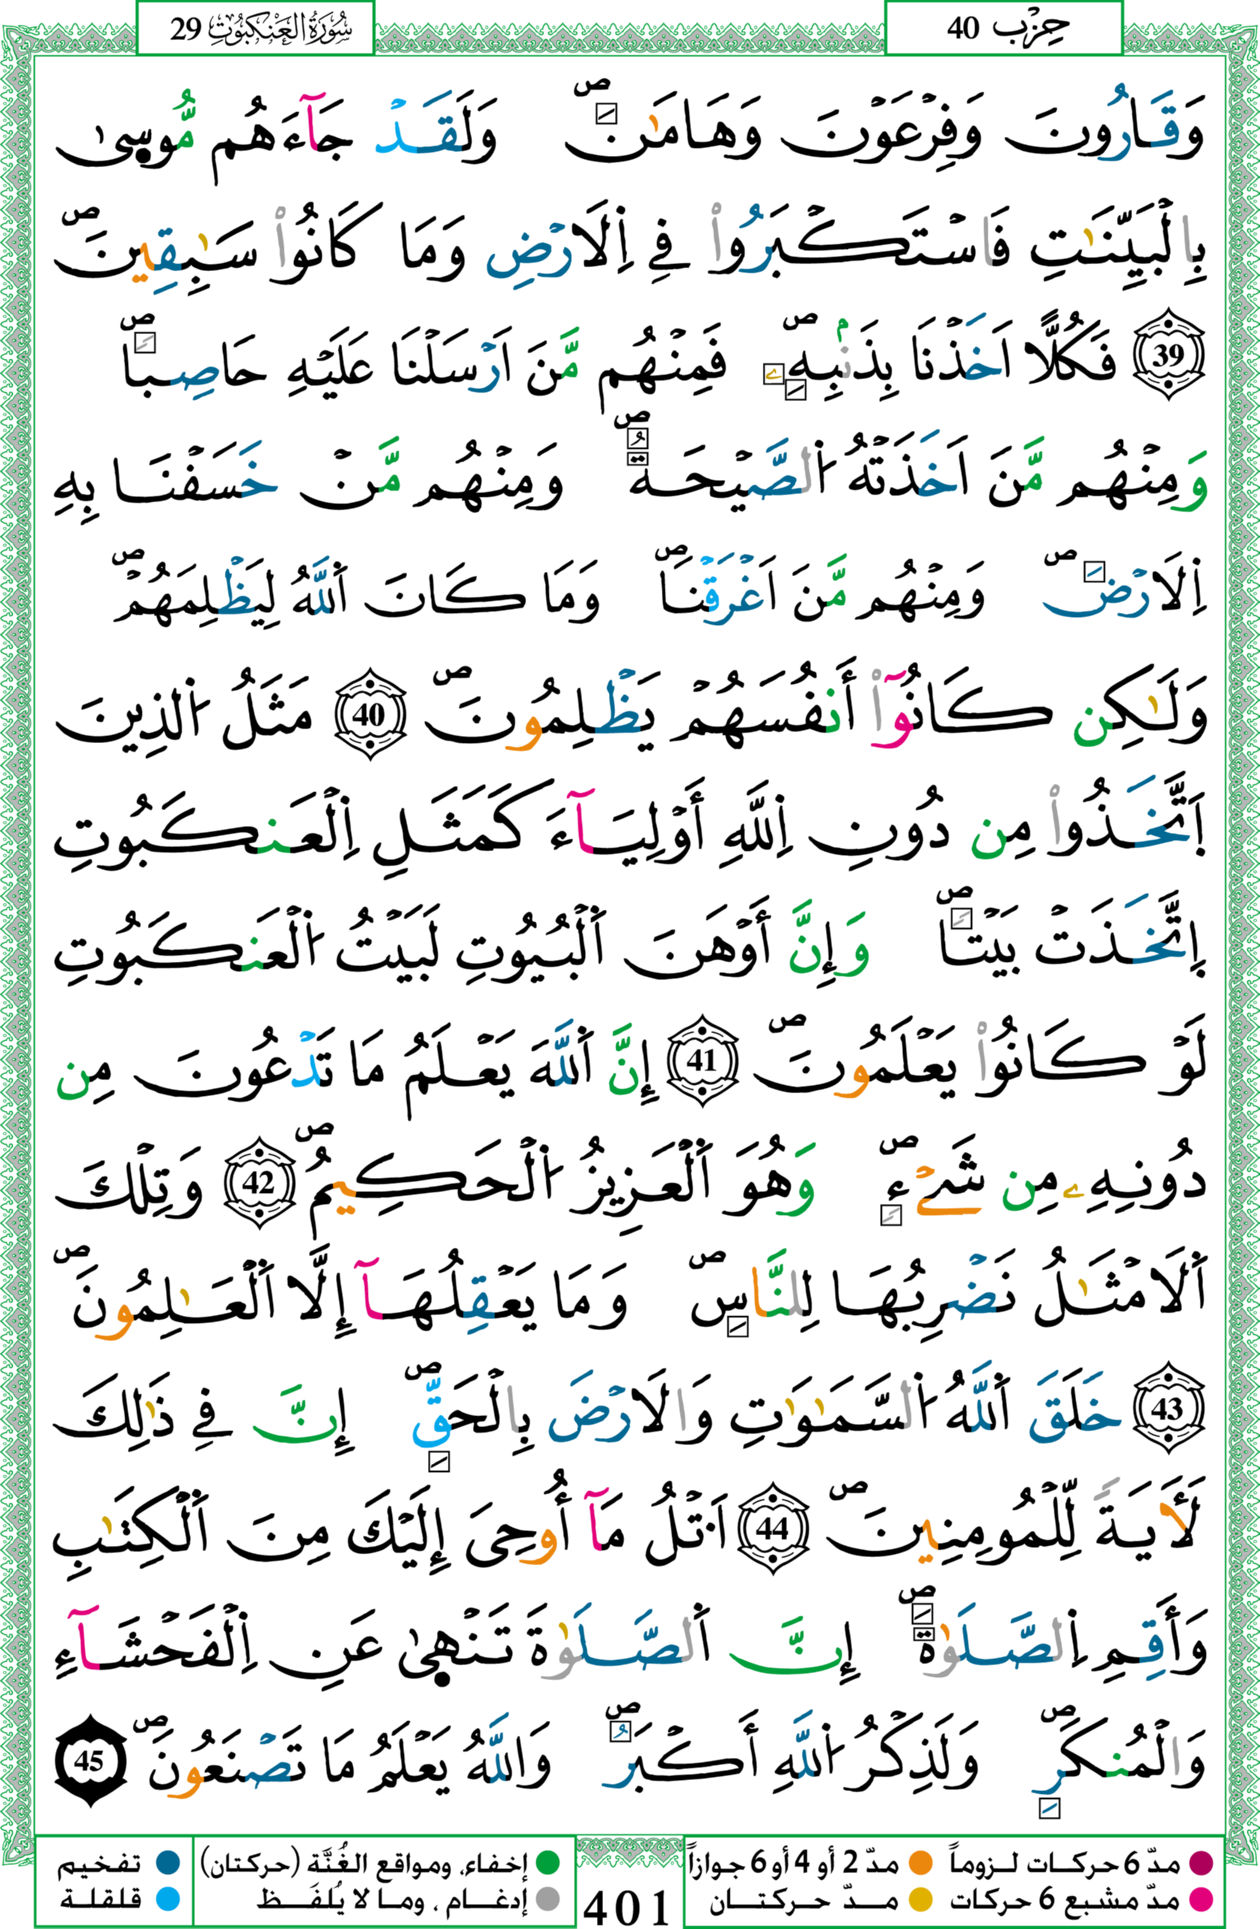 حِزْب 40
سُورَةُ الْعَنكَبُوتِ 29
وَقَـٰرُونَ وَفِرْعَوْنَ وَهَامَـٰنَ ۖ وَلَقَدْ جَآءَهُم مُّوسۭيٰ
بِالْبَيِّنَـٰتِ فَاسْتَكْبَرُواْ فِے اِ۬لَارْضِ وَمَا كَانُواْ سَـٰبِقِينَ ۖ
39 فَكُلًّا اَخَذْنَا بِذَنۢبِهِۦ ۖ فَمِنْهُم مَّنَ اَرْسَلْنَا عَلَيْهِ حَاصِباً ۖ
وَمِنْهُم مَّنَ اَخَذَتْهُ اُ۬لصَّيْحَةُ ۖ وَمِنْهُم مَّنْ خَسَفْنَا بِهِ
اِ۬لَارْضَ ۖ وَمِنْهُم مَّنَ اَغْرَقْنَا ۖ وَمَا كَانَ اَ۬للَّهُ لِيَظْلِمَهُمْ ۖ
وَلَـٰكِن كَانُوٓاْ أَنفُسَهُمْ يَظْلِمُونَ ۖ 40 مَثَلُ اُ۬لذِينَ
اَ۪تَّخَذُواْ مِن دُونِ اِ۬للَّهِ أَوْلِيَآءَ كَمَثَلِ اِ۬لْعَنكَبُوتِ
اِ۪تَّخَذَتْ بَيْتاً ۖ وَإِنَّ أَوْهَنَ اَ۬لْبُيُوتِ لَبَيْتُ اُ۬لْعَنكَبُوتِ
لَوْ كَانُواْ يَعْلَمُونَ ۖ 41 إِنَّ اَ۬للَّهَ يَعْلَمُ مَا تَدْعُونَ مِن
دُونِهِۦ مِن شَےْءٍ ۖ وَهُوَ اَ۬لْعَزِيزُ اُ۬لْحَكِيمُ ۖ 42 وَتِلْكَ
اَ۬لَامْثَـٰلُ نَضْرِبُهَا لِلنَّاسِ ۖ وَمَا يَعْقِلُهَآ إِلَّا اَ۬لْعَـٰلِمُونَ ۖ
43 خَلَقَ اَ۬للَّهُ اُ۬لسَّمَـٰوَٰتِ وَالَارْضَ بِالْحَقِّ ۖ إِنَّ فِے ذَٰلِكَ
لَأٓيَةً لِّلْمُومِنِينَ ۖ 44 اَ۟تْلُ مَآ أُوحِيَ إِلَيْكَ مِنَ اَ۬لْكِتَـٰبِ
وَأَقِمِ اِ۬لصَّلَوٰةَ ۖ إِنَّ اَ۬لصَّلَوٰةَ تَنْهۭيٰ عَنِ اِ۬لْفَحْشَآءِ
وَالْمُنكَرِ ۖ وَلَذِكْرُ اُ۬للَّهِ أَكْبَرُ ۖ وَاللَّهُ يَعْلَمُ مَا تَصْنَعُونَ ۖ 45
مدّ 6 حركات لـزوماً
مدّ 2 أو 4 أو 6 جوازاً
إخفاء، ومواقع الغُنَّة (حركتان)
تفخيم
مدّ مشبع 6 حركات
مــدّ حركتــان
إدغـام ، ومـا لا يُلفَـظ
قلقلة
401